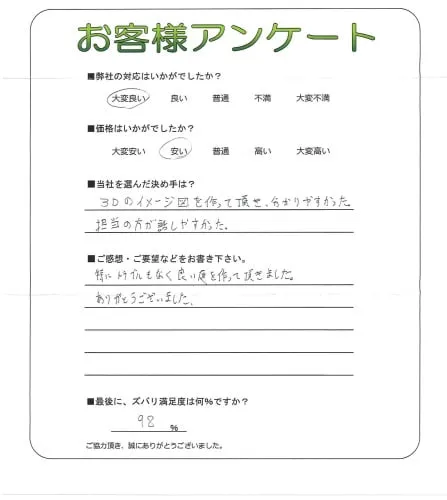 お客様アンケート
■弊社の対応はいかがでしたか？
大変良い 良い 普通 不満 大変不満
■価格はいかがでしたか？
大変安い 安い 普通 高い 大変高い
■当社を選んだ決め手は？
3Dのイメージ図を作って頂き、分かりやすかった。
担当の方が話しやすかった。
■ご感想・ご要望などをお書き下さい。
特にトラブルもなく良い庭を作って頂きました。
ありがとうございました。
■最後に、ズバリ満足度は何％ですか？
98 ％
ご協力頂き、誠にありがとうございました。